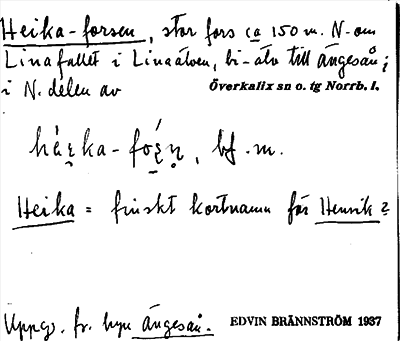 Heika-forsen, stor fors ca 150 m. N. om
Linafallet i Linaälven, bi-älv till Ängesån;
i N. delen av Överkalix sn o. tg Norrb. l.
bf. m.
Heika = finskt kortnamn för Henrik?
Uppg. fr. byn Ängesån. EDVIN BRÄNNSTRÖM 1937